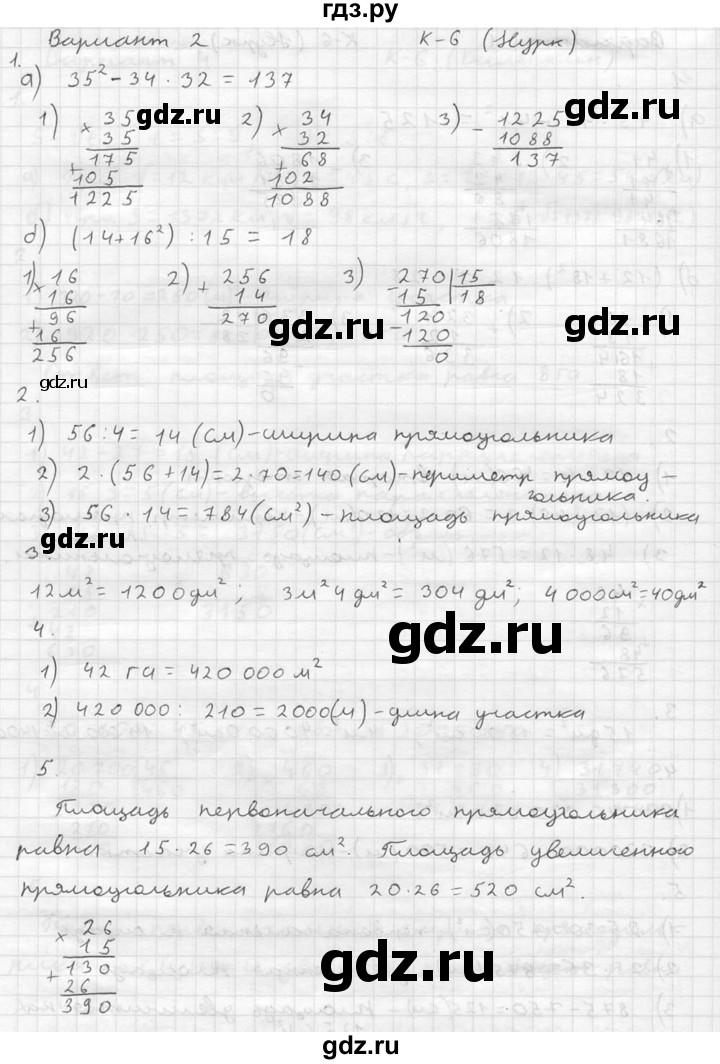 гдз.ру
Вариант 2 К-6 (Нурк)
1.
а) 35² - 34 · 32 = 137
1) × 35 2) × 34 3) - 1225
35 32 1088
+ 175 + 68 137
105 102
1225 1088
gdz.ru gdz.ru gdz.ru
б) (14+16²) : 15 = 18
1) × 16 2) + 256 3) - 270 | 15
16 14 15 18
+ 96 270 - 120
16 120
256 0
gdz.ru gdz.ru gdz.ru
2.
1) 56 : 4 = 14 (см) - ширина прямоугольника
2) 2 · (56 + 14) = 2 · 70 = 140 (см) - периметр прямоу -
гольника.
3) 56 · 14 = 784 (см²) - площадь прямоугольника
gdz.ru
3.
12 м² = 1200 дм² ; 3 м² 4 дм² = 304 дм² ; 4 000 см² = 40 дм²
gdz.ru
4.
1) 42 га = 420 000 м²
2) 420 000 : 210 = 2000 (ч) - длина участка
5.
gdz.ru
Площадь первоначального прямоугольника
равна 15 · 26 = 390 см². Площадь увеличенного
прямоугольника равна 20 · 26 = 520 см².
× 26
15
+ 130
26
390
gdz.ru
gdz.ru